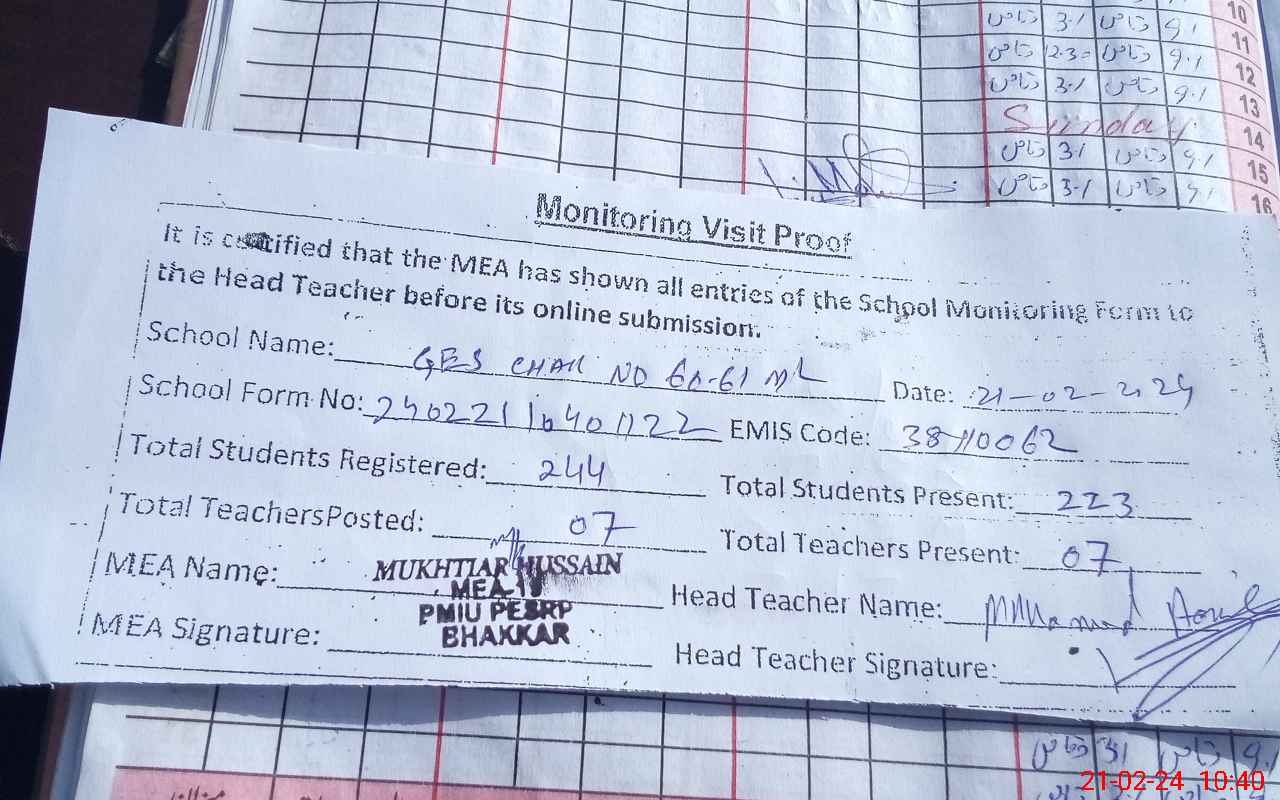 10
خاص 3.1 خاص 9.1 11
خاص 12.30 خاص 9.1 12
خاص 3.1 خاص 9.1 13
Sunday 14
خاص 3.1 خاص 9.1 15
خاص 3.1 خاص 9.1 16
Monitoring Visit Proof
It is certified that the MEA has shown all entries of the School Monitoring Form to
the Head Teacher before its online submission.
School Name: GES CHAK NO 60-61 ML Date: 21-02-2024
School Form No: EMIS Code: 38110062
Total Students Registered: 244 Total Students Present: 223
Total TeachersPosted: 07 Total Teachers Present: 07
MEA Name: MUKHTIAR HUSSAIN Head Teacher Name:
MEA
PMIU PESRP
BHAKKAR
MEA Signature: Head Teacher Signature:
21-02-24 10:40